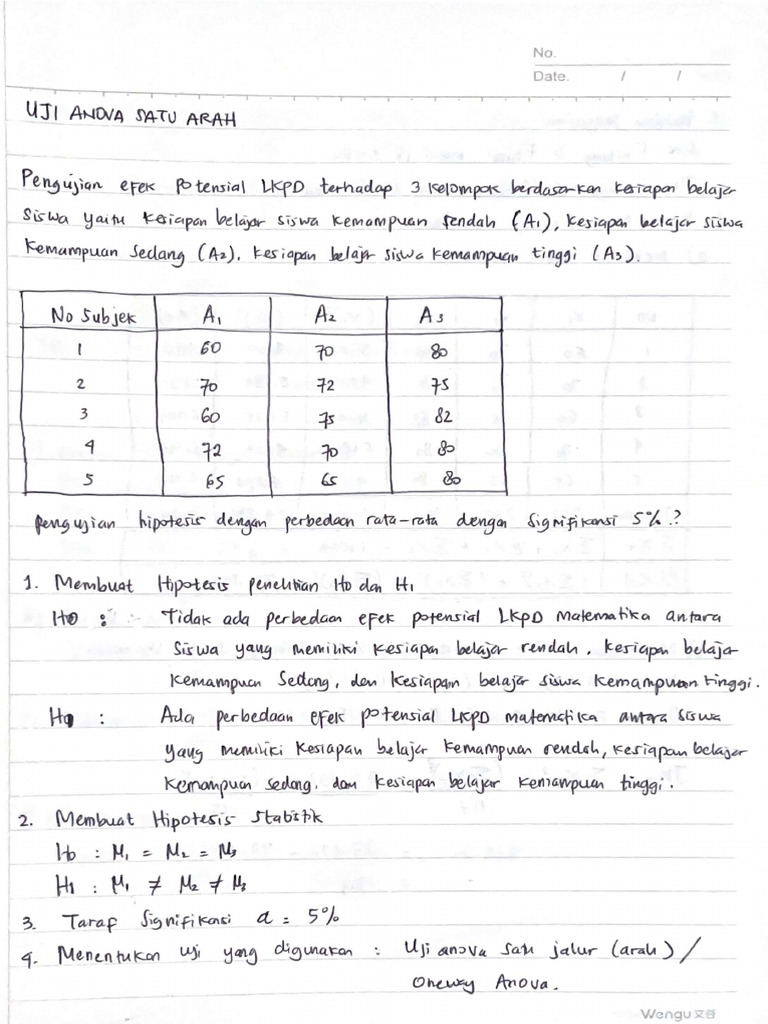 No.
Date. / /
UJI ANOVA SATU ARAH
Pengujian efek potensial LKPD terhadap 3 kelompok berdasarkan kesiapan belajar
siswa yaitu kesiapan belajar siswa kemampuan rendah (A₁), kesiapan belajar siswa
kemampuan sedang (A₂), kesiapan belajar siswa kemampuan tinggi (A₃).
No Subjek A₁ A₂ A₃
1 60 70 80
2 70 72 75
3 60 75 82
4 72 70 80
5 65 65 80
pengujian hipotesis dengan perbedaan rata-rata dengan signifikansi 5%.?
1. Membuat Hipotesis penelitian H0 dan H1
H0 : Tidak ada perbedaan efek potensial LKPD Matematika antara
siswa yang memiliki kesiapan belajar rendah, kesiapan belajar
kemampuan sedang, dan kesiapan belajar siswa kemampuan tinggi.
Ha : Ada perbedaan efek potensial LKPD matematika antara siswa
yang memiliki kesiapan belajar kemampuan rendah, kesiapan belajar
kemampuan sedang, dan kesiapan belajar kemampuan tinggi.
2. Membuat Hipotesis Statistik
H0 : M₁ = M₂ = M₃
H1 : M₁ ≠ M₂ ≠ M₃
3. Taraf Signifikansi α = 5%
4. Menentukan uji yang digunakan : Uji anova satu jalur (arah) /
Oneway Anova.
Wengu 文谷